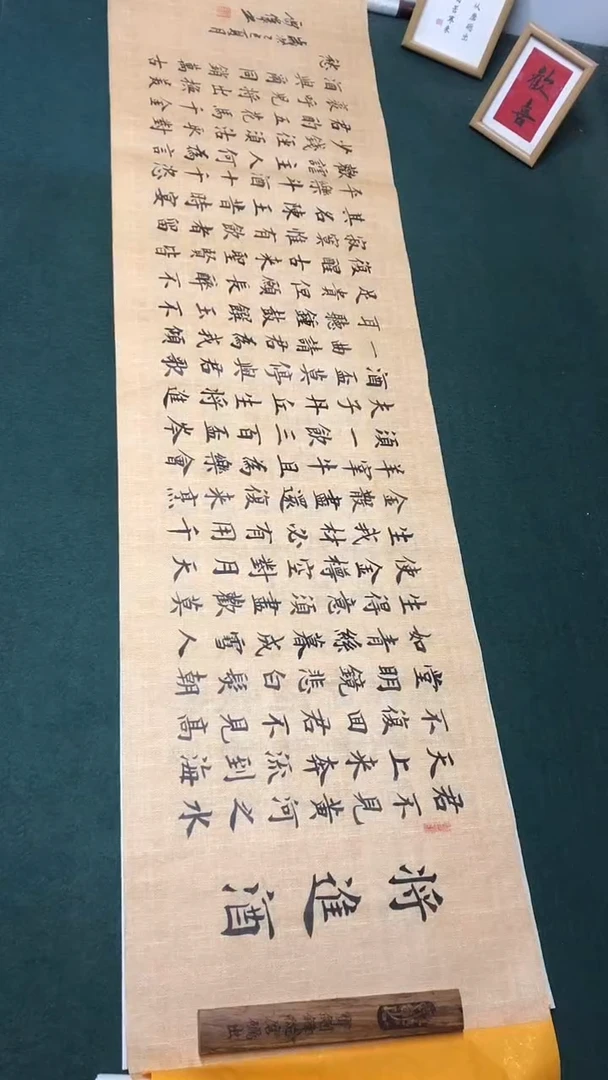 将進酒
君不見黃河之水
天上来奔流到海
不復回君不見高
堂明鏡悲白髮朝
如青絲暮成雪人
生得意須盡歡莫
使金樽空對月天
生我材必有用千
金散盡還復来烹
羊宰牛且為樂會
須一飲三百盃岑
夫子丹丘生将進
酒盃莫停與君歌
一曲請君為我傾
耳聽鍾鼓饌玉不
足貴但願長醉不
復醒古来聖賢皆
寂寞惟有飲者留
其名陳王昔時宴
平樂斗酒十千恣
歡謔主人何為言
少錢徑須沽取對
君酌五花馬千金
裘呼兒将出換美
酒與爾同銷萬古
愁
歡喜